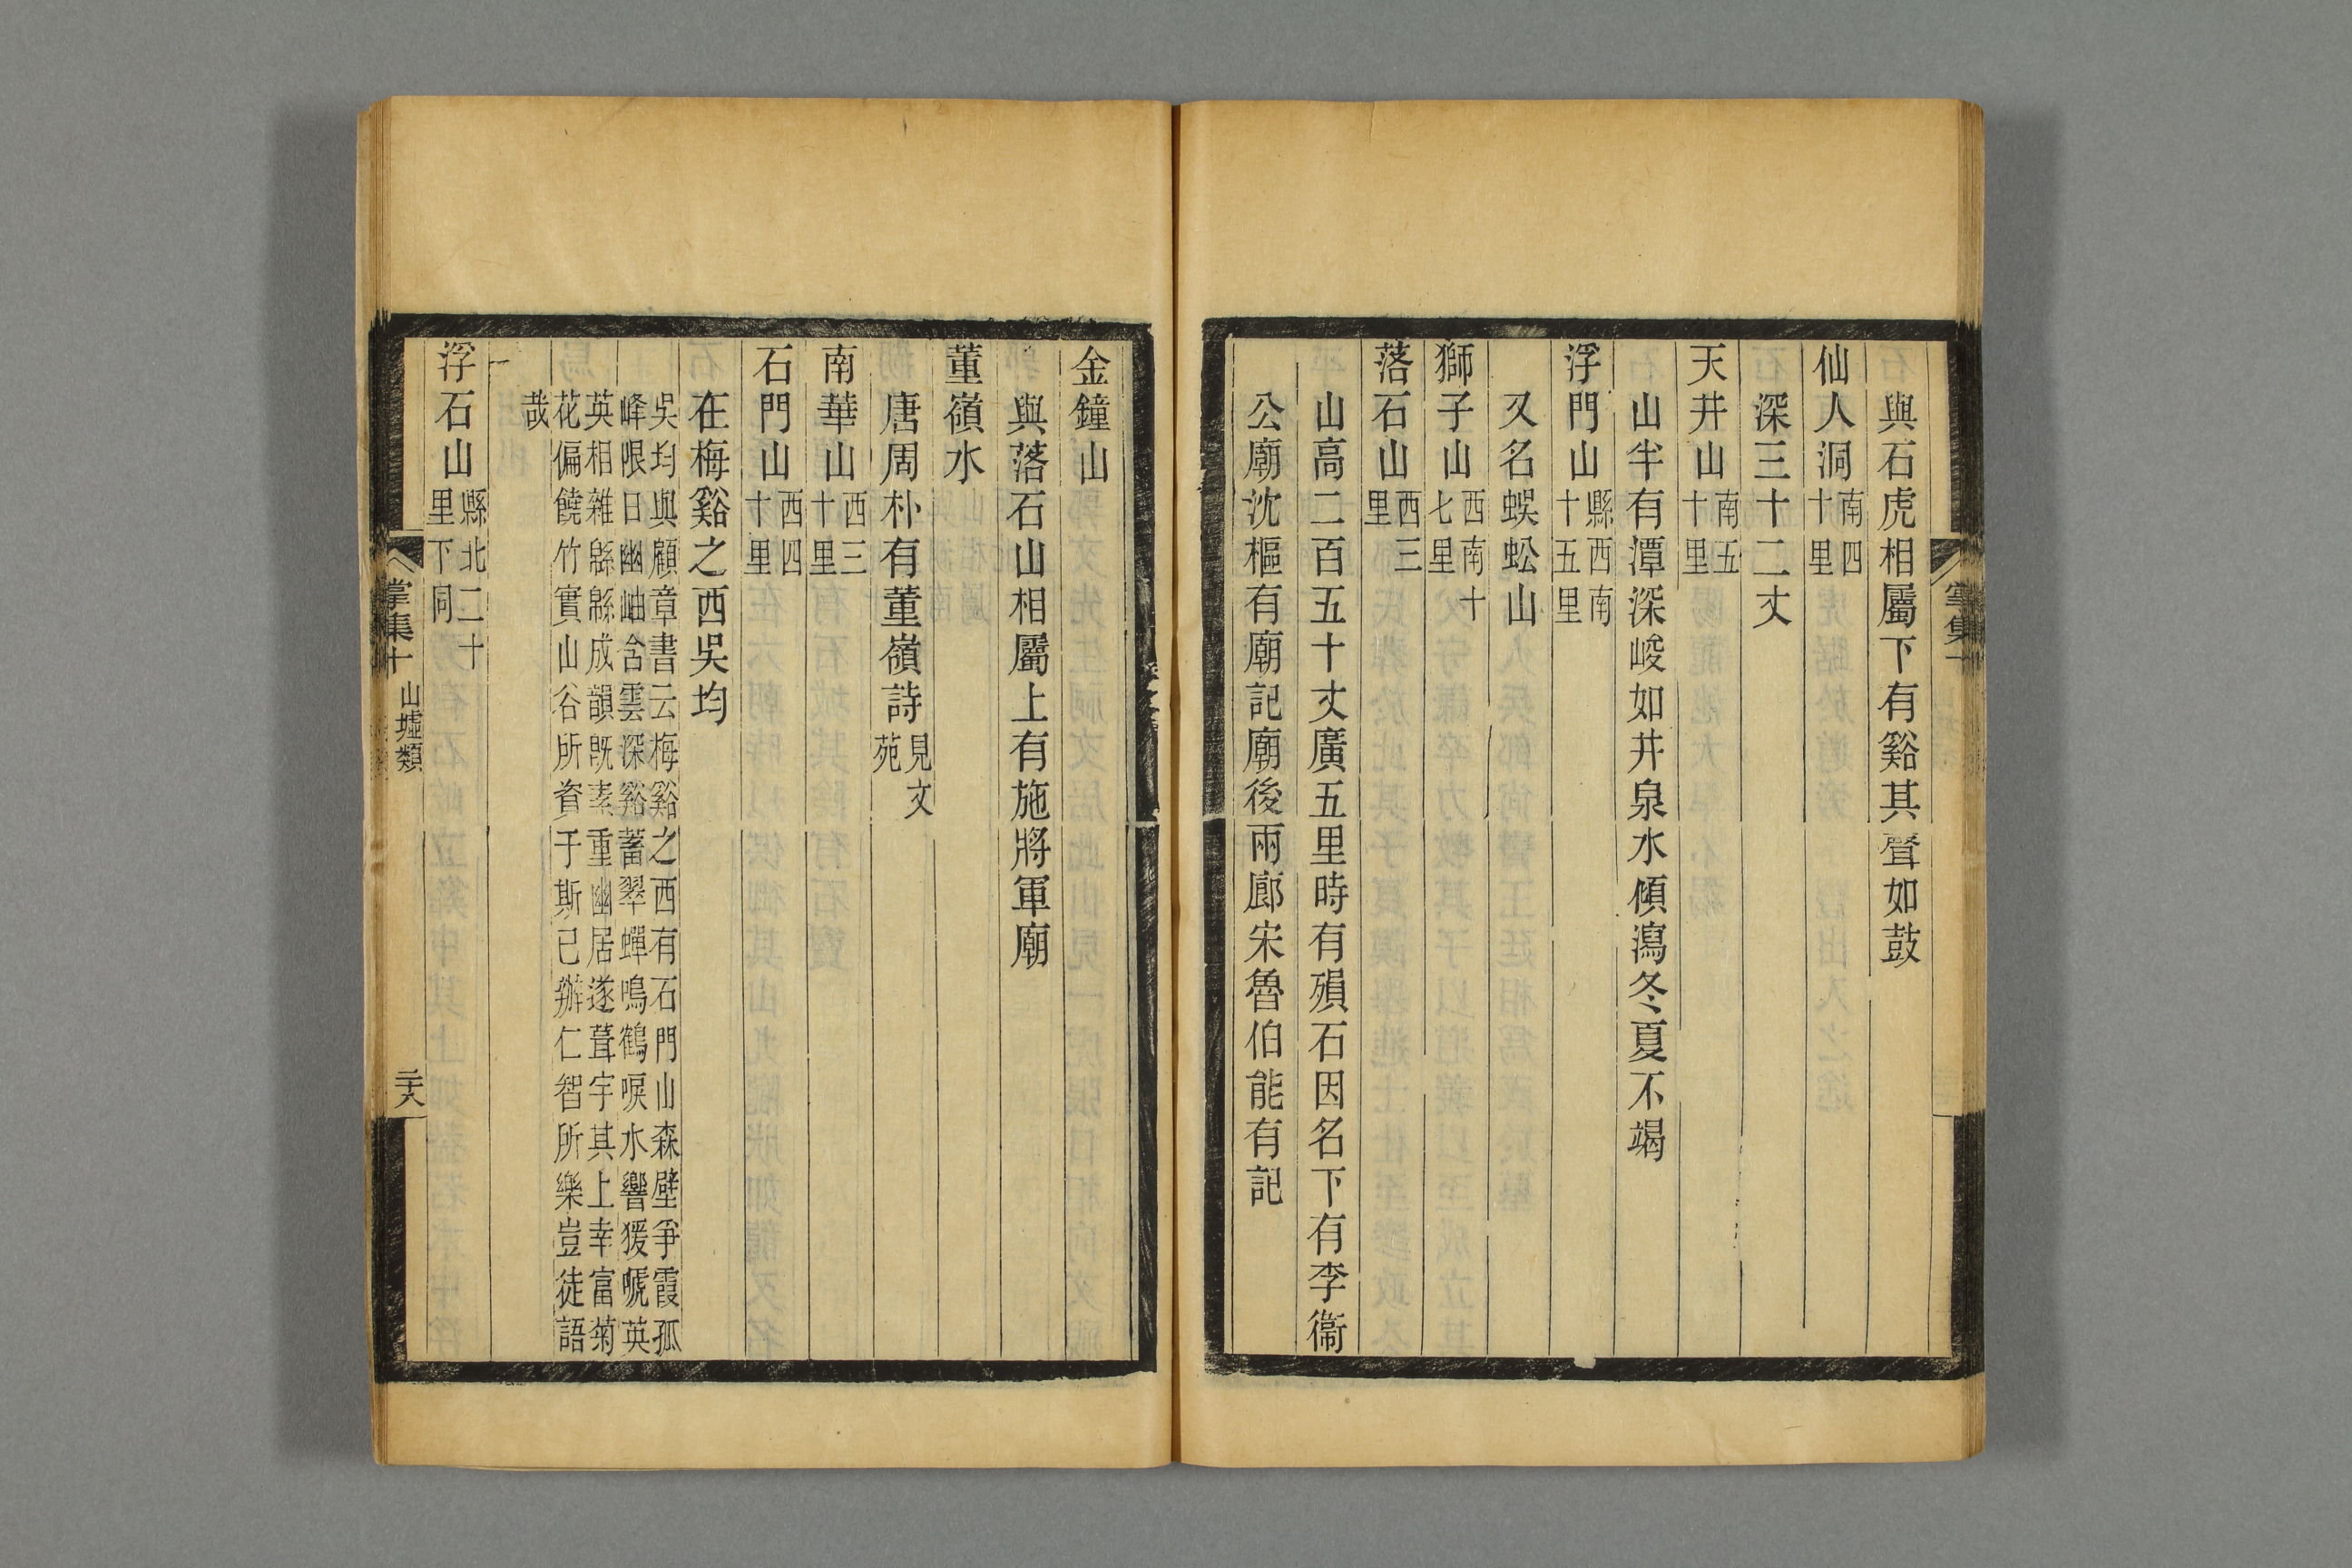 與石虎相屬下有谿其聲如鼓
仙人洞南四十里
深三十二丈
天井山南五十里
山半有潭深峻如井泉水傾瀉冬夏不竭
浮門山縣西南十五里
又名蜈蚣山
獅子山西南十七里
落石山西三里
山高二百五十丈廣五里時有殞石因名下有李衞
公廟沈樞有廟記廟後兩廊宋魯伯能有記
金鐘山
與落石山相屬上有施將軍廟
董嶺水
唐周朴有董嶺詩見文苑
南華山西三十里
石門山西四十里
在梅谿之西吳均
吳均與顧章書云梅谿之西有石門山森壁爭霞孤
峰限日幽岫含雲深谿蓄翠蟬鳴鶴唳水響猨嗁英
英相雜緜緜成韻旣素重幽居遂葺宇其上幸富菊
花偏饒竹實山谷所資于斯已辦仁智所樂豈徒語
哉
浮石山縣北二十里下同
掌集十
山墟類
二十八